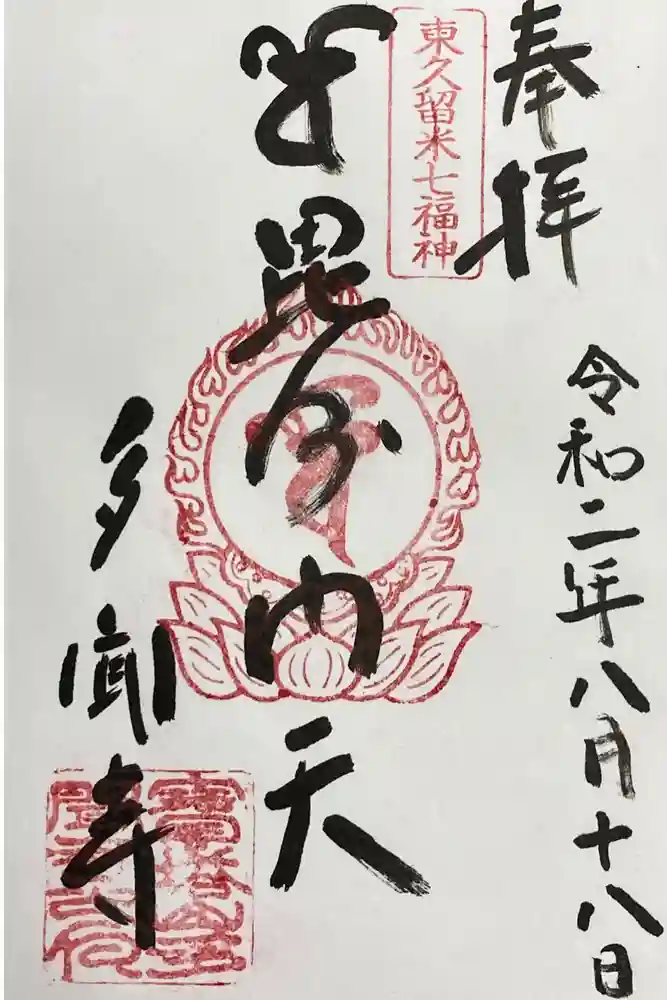 奉拝
令和二年八月十八日
東久留米七福神
毘沙門天
多聞寺